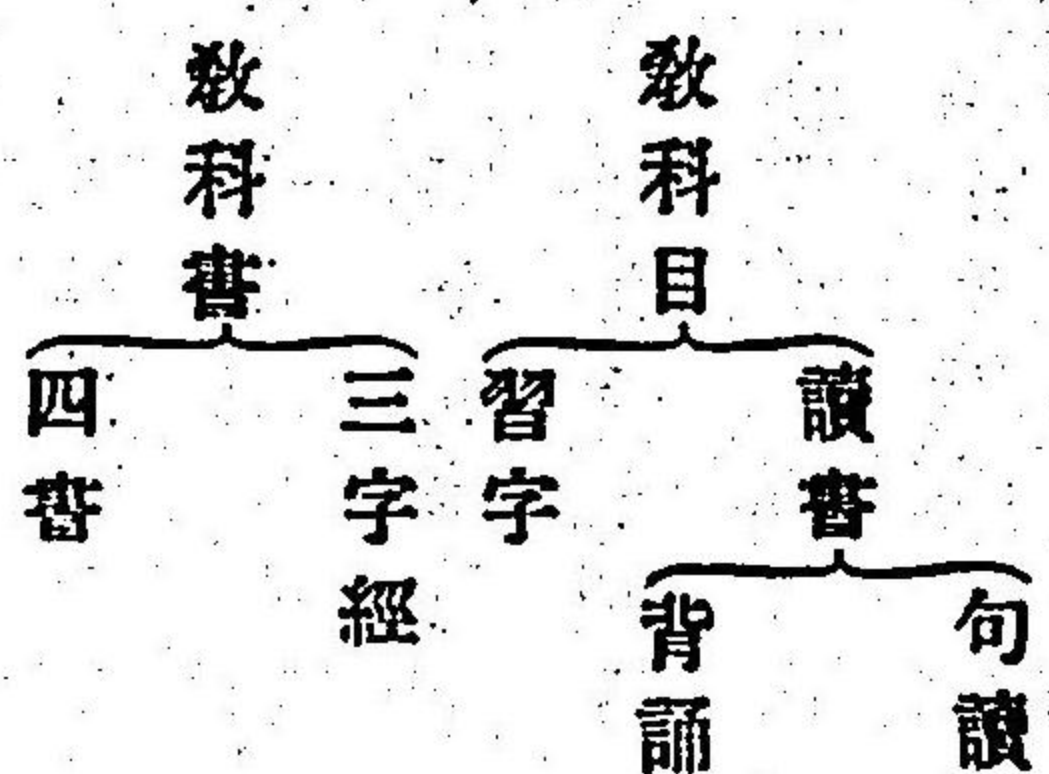 教科目
讀書
句讀
背誦
習字
教科書
三字經
四書